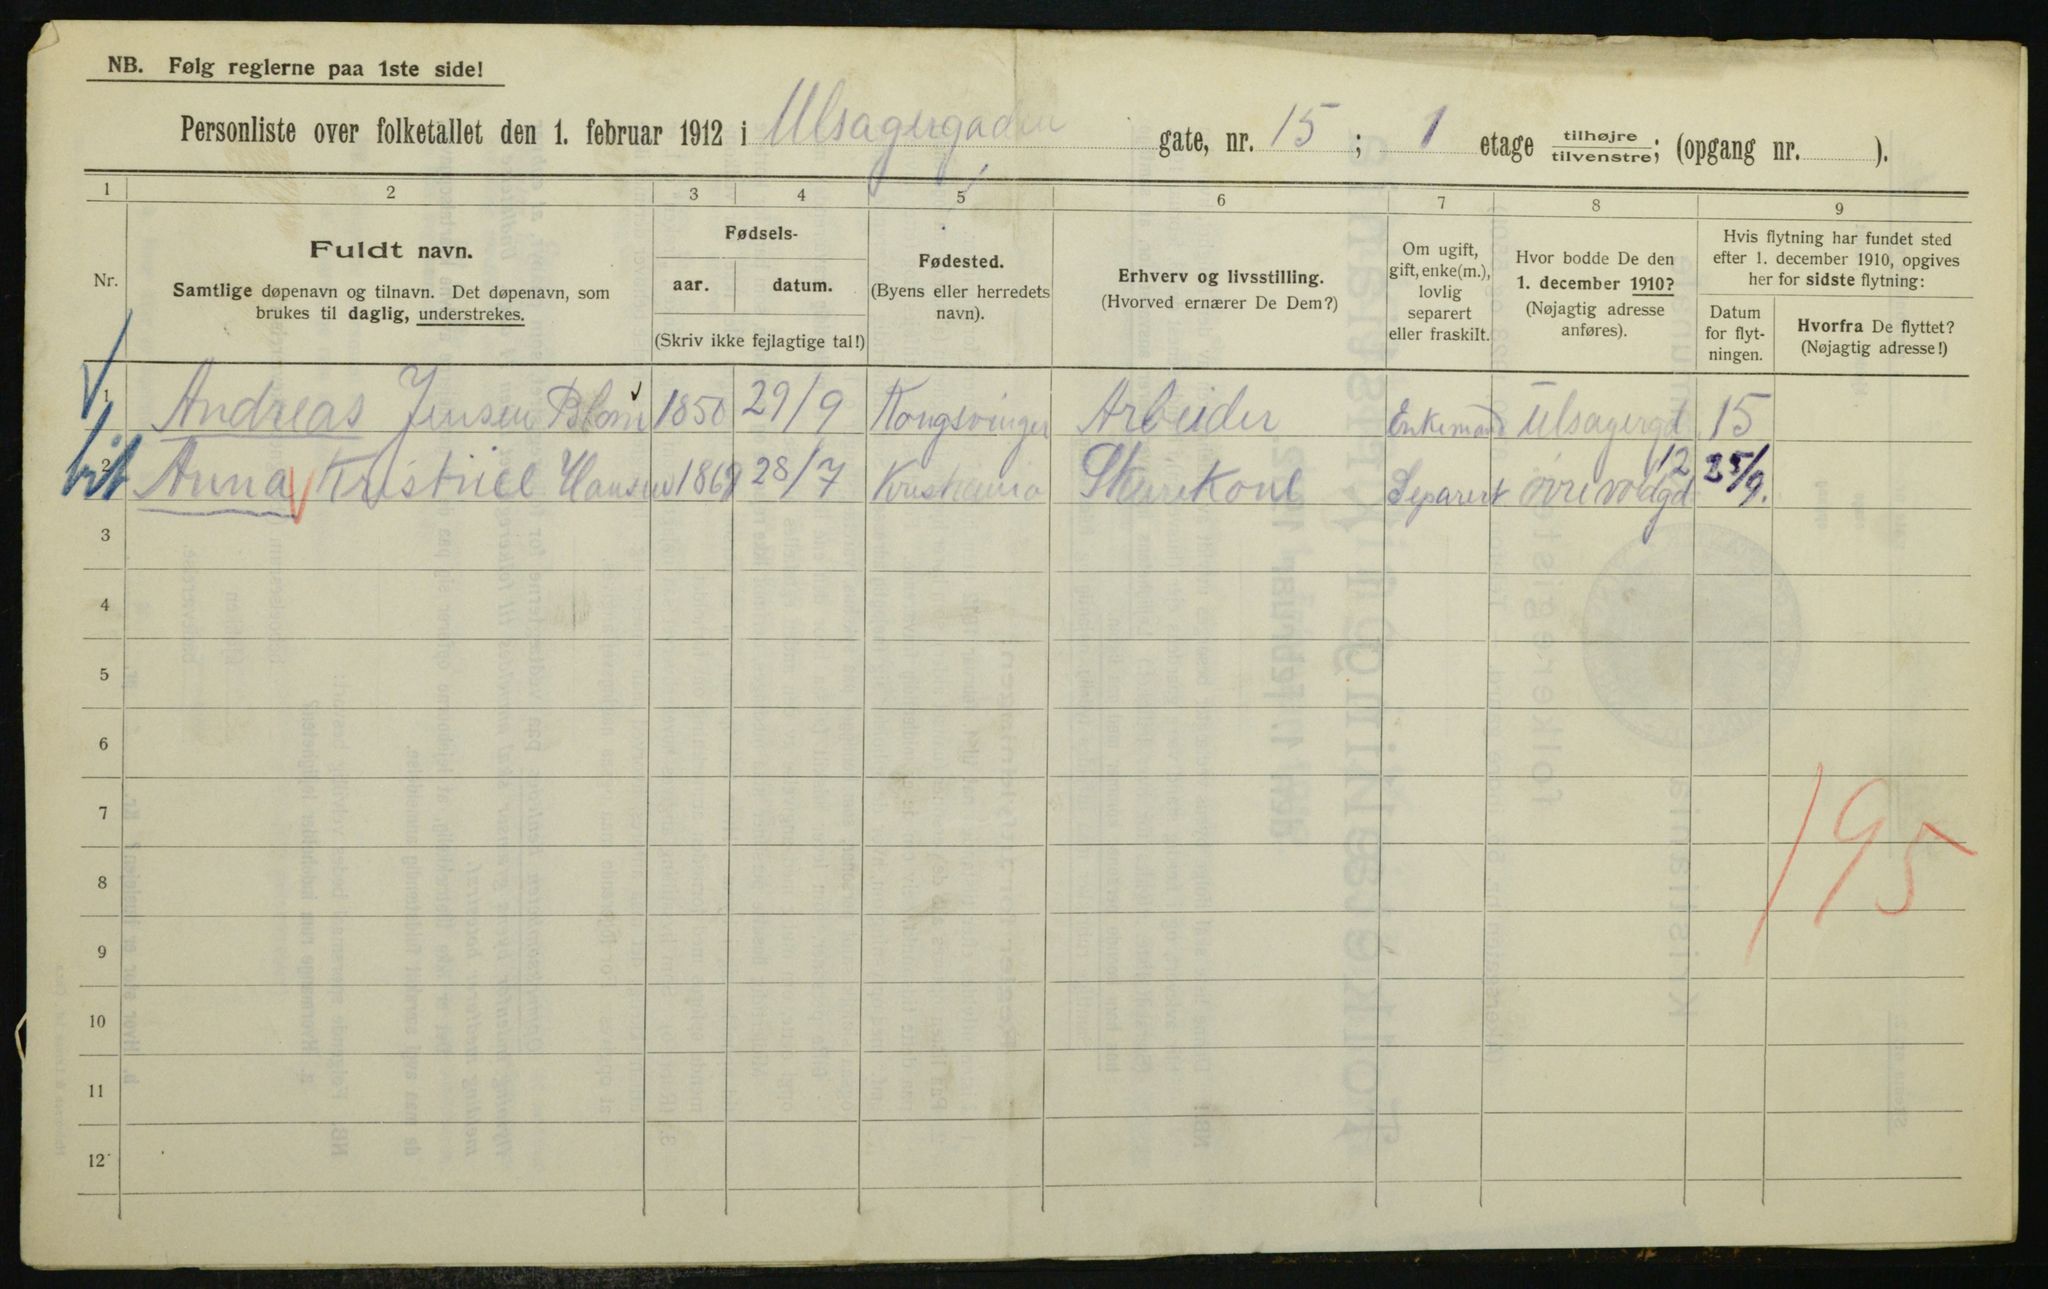 NB. Følg reglerne paa 1ste side!
Personliste over folketallet den 1. februar 1912 i Ulsagergaden gate, nr. 15 ; 1 etage tilhøjre tilvenstre; (opgang nr. ).
1 2 3 4 5 6 7 8 9
Nr.
Fuldt navn.
Samtlige døpenavn og tilnavn. Det døpenavn, som
brukes til daglig, understrekes.
Fødsels-
aar. datum.
(Skriv ikke fejlagtige tal!)
Fødested.
(Byens eller herredets
navn).
Erhverv og livsstilling.
(Hvorved ernærer De Dem?)
Om ugift,
gift, enke(m.),
lovlig
separert
eller fraskilt.
Hvor bodde De den
1. december 1910?
(Nøjagtig adresse
anføres).
Hvis flytning har fundet sted
efter 1. december 1910, opgives
her for sidste flytning:
Datum
for flyt-
ningen.
Hvorfra De flyttet?
(Nøjagtig adresse!)
1 Andreas Jensen Blom 1850 29/9 Kongsvinger Arbeider Enkemand Ulsagergd 15
2 Anna Hansen 28/7 Separert 12 25/9.
3
4
5
6
7
8
9
10
11
12
195